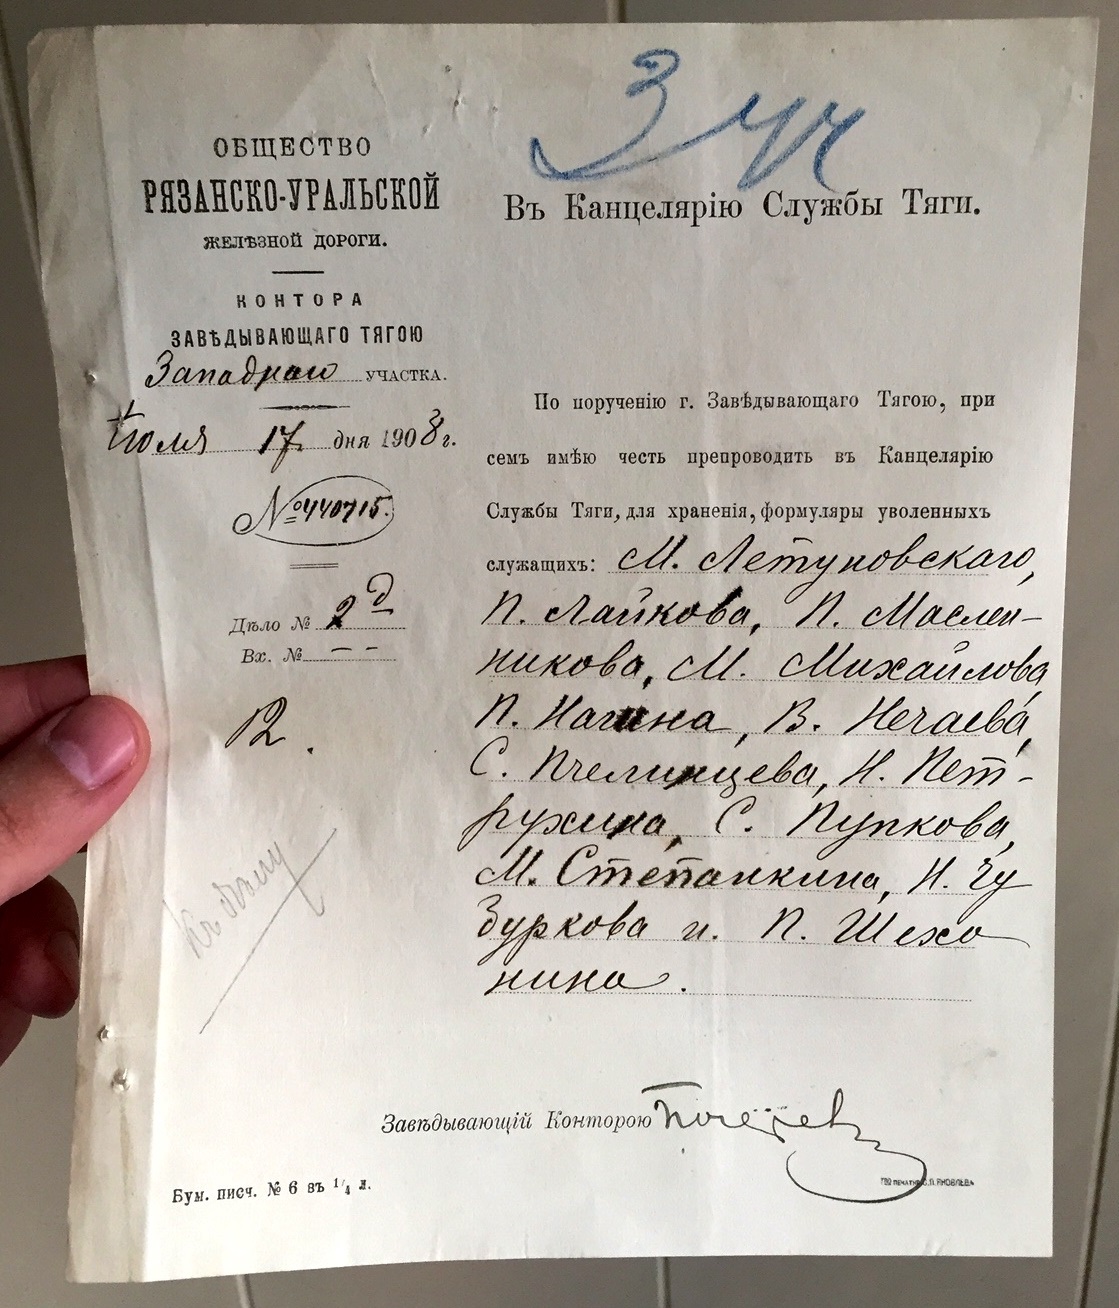 З уч
ОБЩЕСТВО
РЯЗАНСКО-УРАЛЬСКОЙ
ЖЕЛѢЗНОЙ ДОРОГИ.
КОНТОРА
ЗАВѢДЫВАЮЩАГО ТЯГОЮ
Западнаго УЧАСТКА.
Іюля 17 дня 1908 г.
№ 440715.
Дѣло № 2 д
Вх. № – –
Въ Канцелярію Службы Тяги.
По порученію г. Завѣдывающаго Тягою, при
семъ имѣю честь препроводить въ Канцелярію
Службы Тяги, для храненія, формуляры уволенныхъ
служащихъ: М. Летуновскаго,
П. Лайкова, П. Маслен-
никова, М. Михайлова,
П. Нагина, В. Нечаева,
С. Пчелинцева, Н. Пет-
рухина, С. Пупкова,
М. Степанкина, Н. Чу
зуркова и П. Шехо
нина.
Завѣдывающій Конторою
Бум. писч. № 6 въ 1/4 л.
С.П. ЯКОВЛЕВА